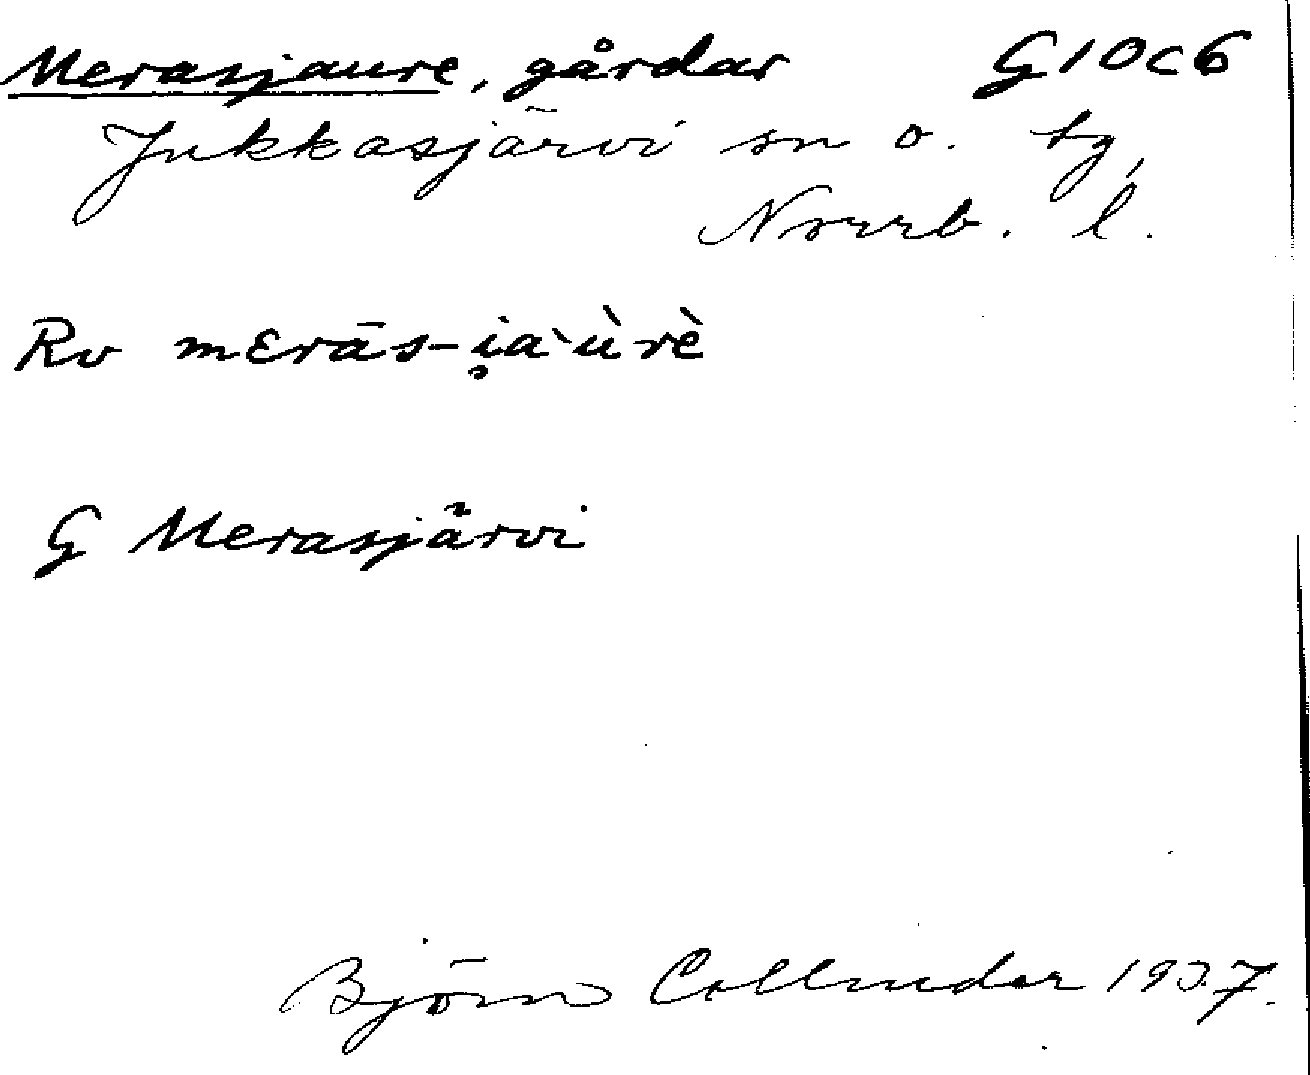 Merasjaure, gårdar G10c6
Jukkasjärvi sn o. tg,
Norrb. l.
Rv mɛrās-i̯a`ùrè
G Merasjärvi
Björn Collinder 1937.